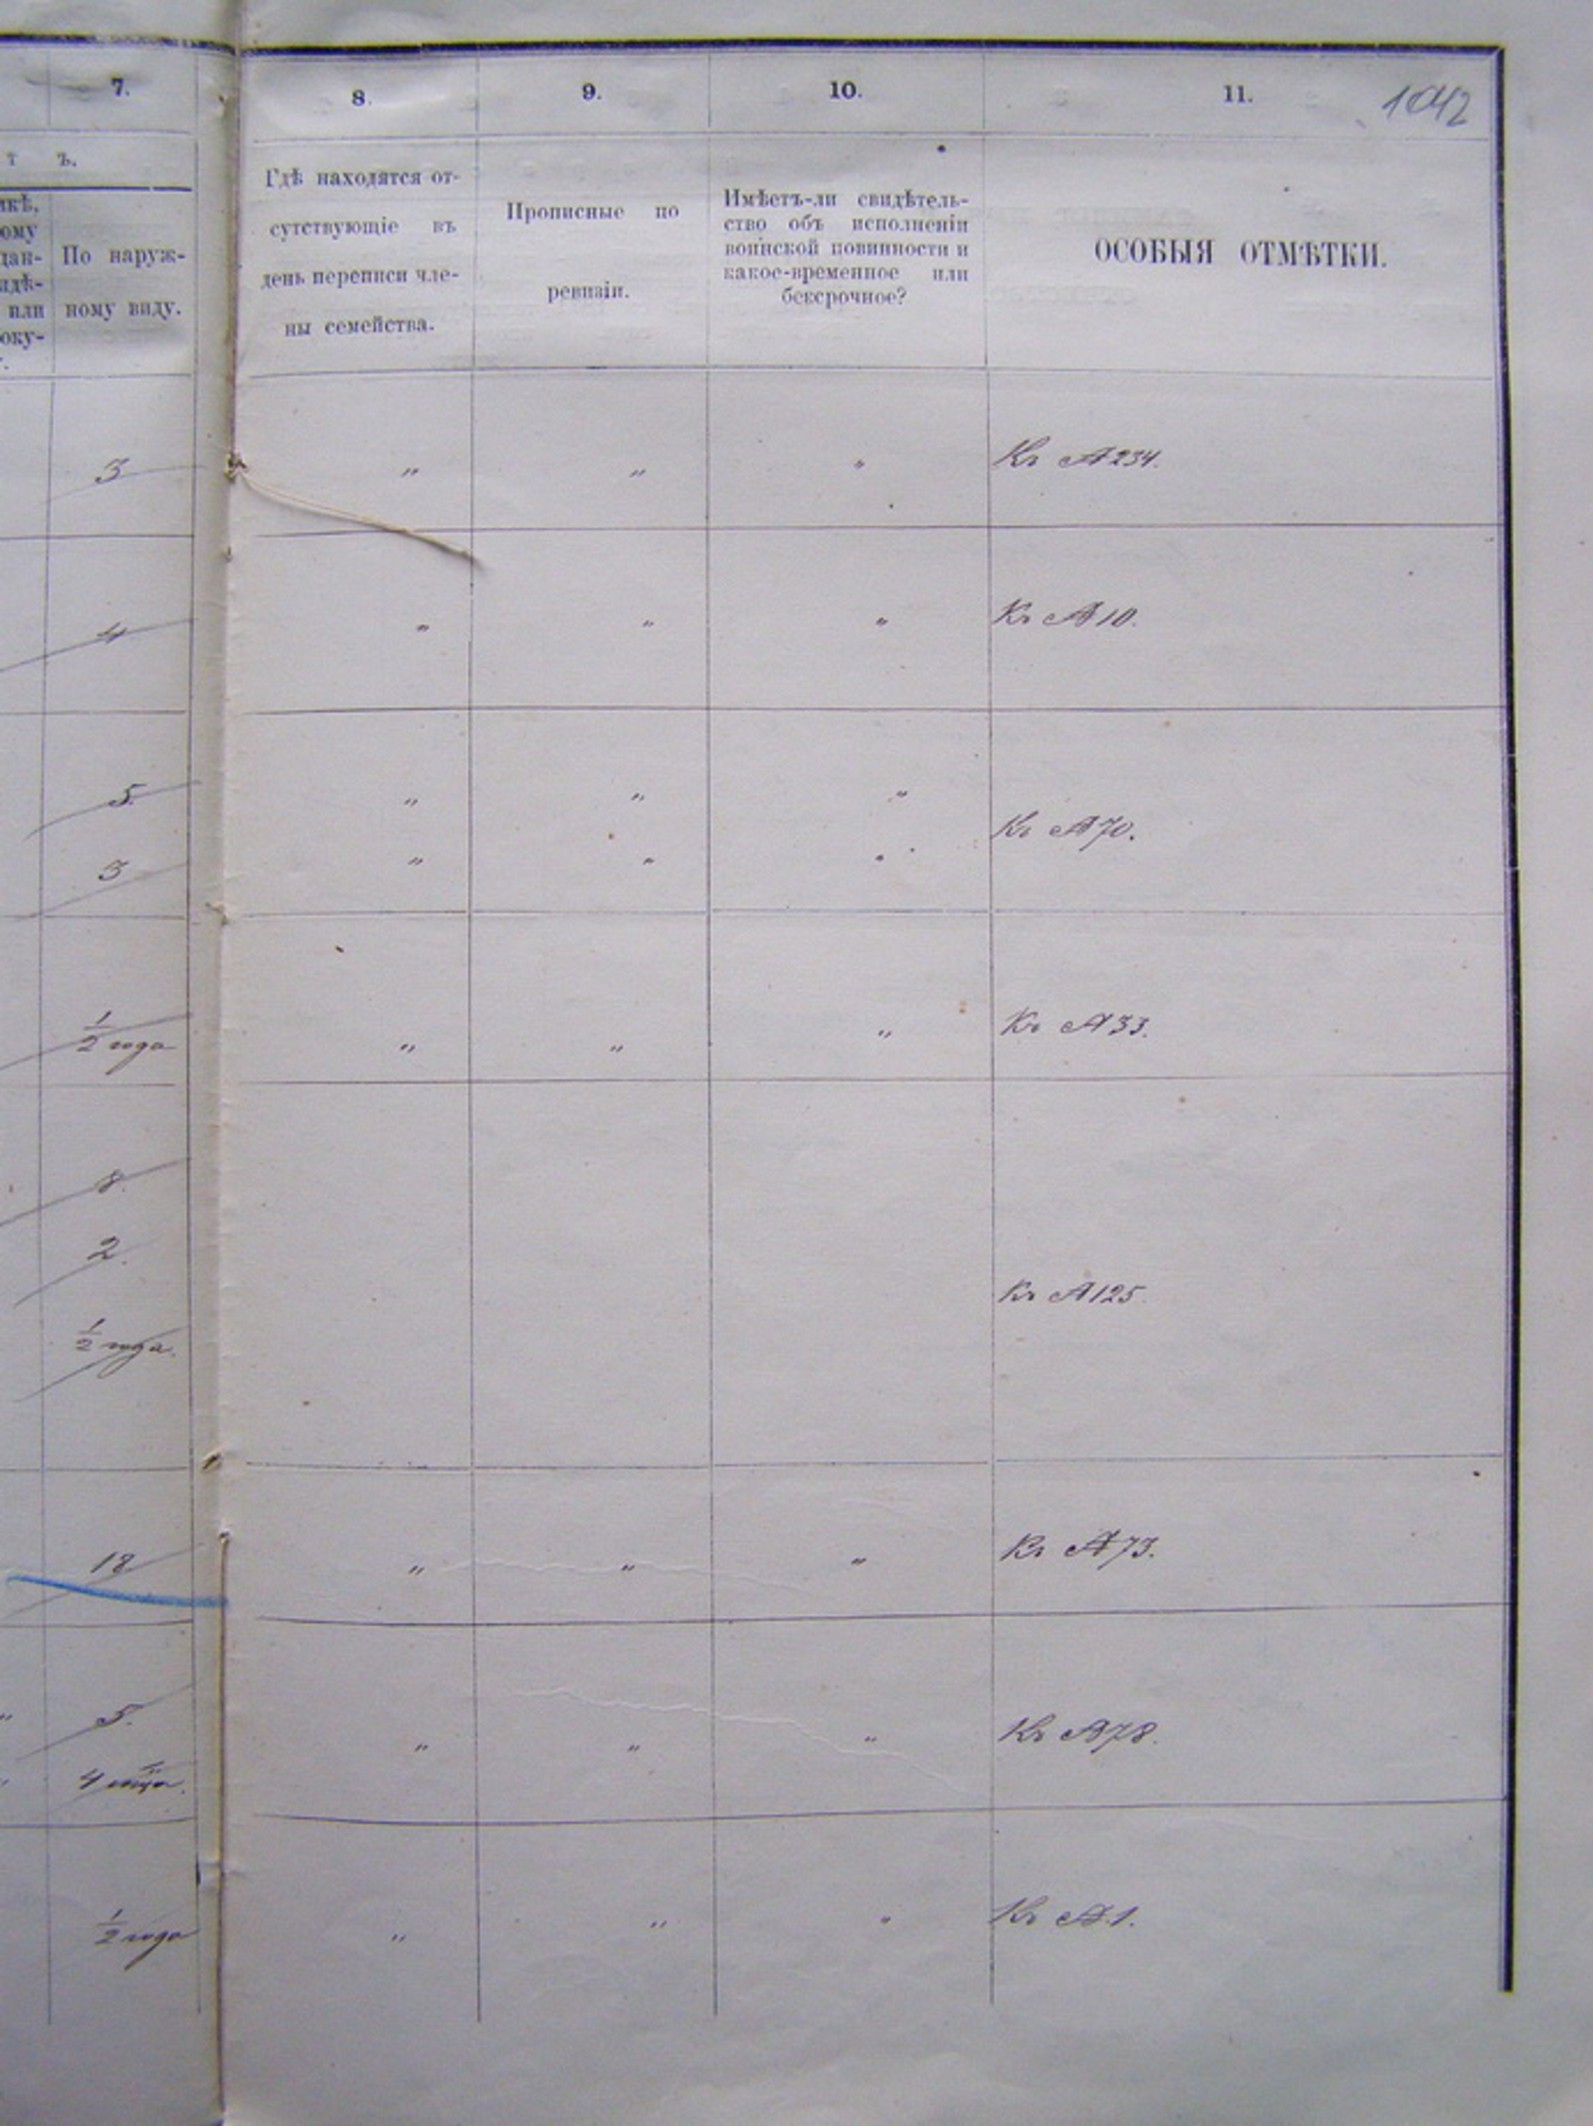 7. 8. 9. 10. 11. 1042
т ъ.
По наруж-
ному виду.
Гдѣ находятся от-
сутствующіе въ
день переписи чле-
ны семейства.
Прописные по
ревизіи.
Имѣетъ-ли свидѣтель-
ство объ исполненіи
воинской повинности и
какое-временное или
безсрочное?
ОСОБЫЯ ОТМѢТКИ.
3 " " " Къ №234.
4 " " " Къ №10.
5. " " "
Къ №70.
3 " " "
1/2 года " " " Къ №33.
8.
2.
Къ №125.
1/2 года.
18 " " " Къ №73.
5. " " " Къ №78.
4
1/2 года " " " Къ №1.